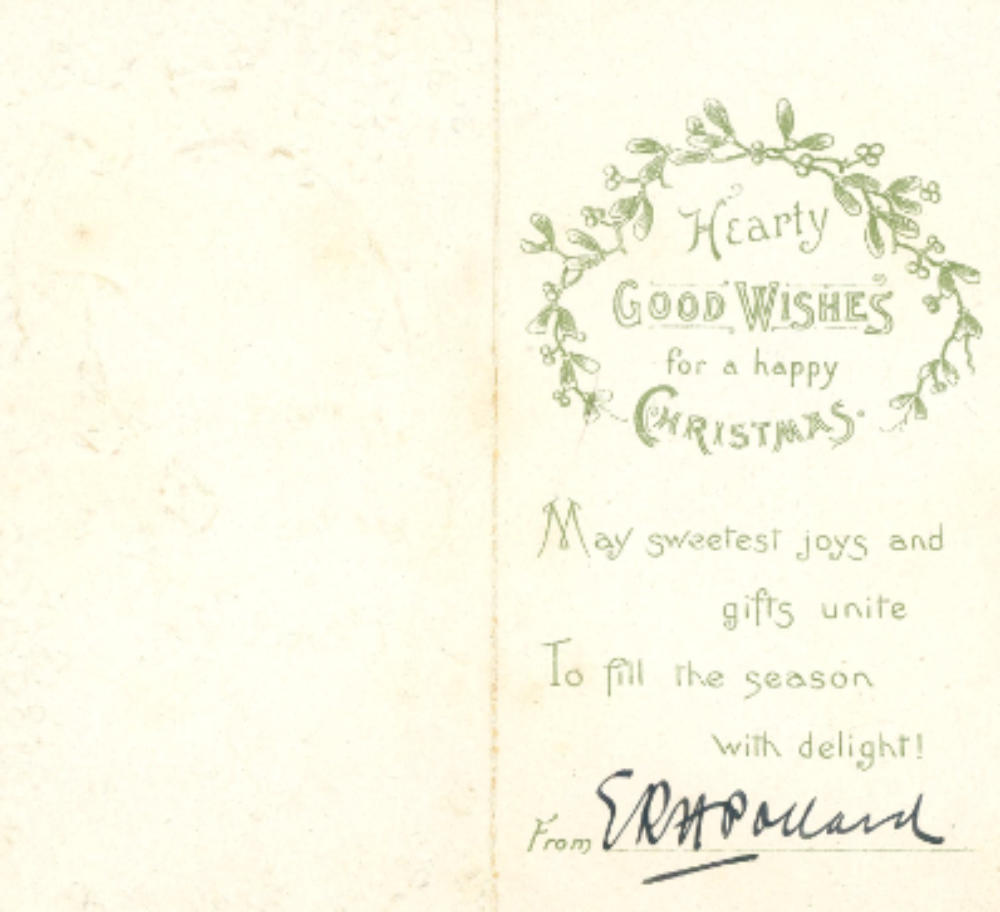 Hearty
GOOD WISHES
for a happy
CHRISTMAS.
May sweetest joys and
gifts unite
To fill the season
with delight!
From ERHPollard